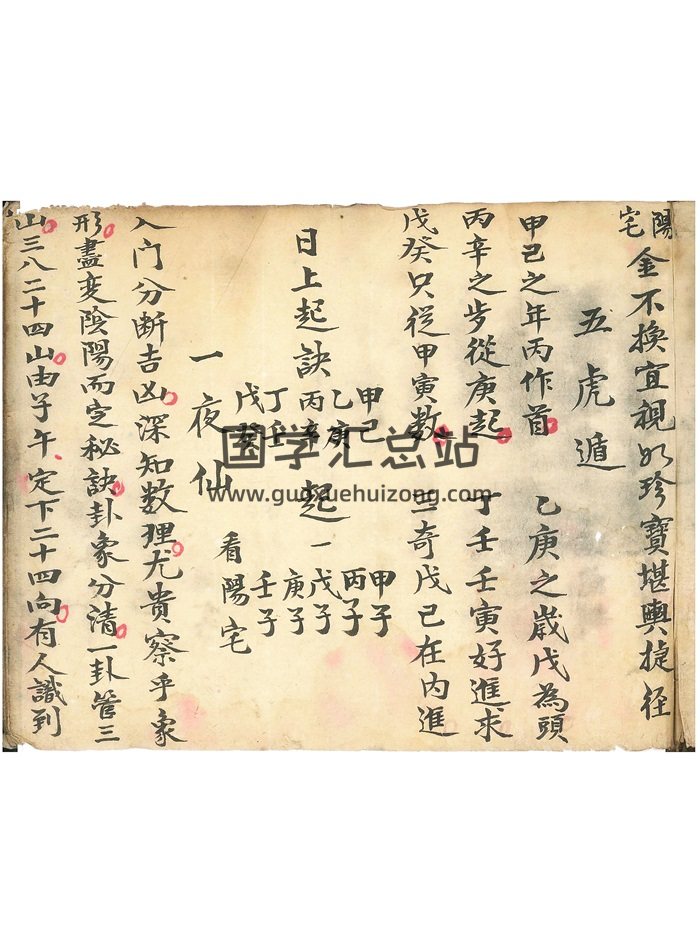 陽宅
金不換宜視如珍寶堪輿捷径
五虎遁
甲己之年丙作首 乙庚之歲戊為頭
丙辛之步從庚起 丁壬壬寅好進求
戊癸只從甲寅數 三奇戊己在内進
日上起訣
甲己
乙庚
丙辛
丁壬
戊癸
起
甲子
丙子
戊子
庚子
壬子
一夜仙 看陽宅
入门分断吉凶深知数理尤貴察乎象
形盡变陰陽而定秘訣卦象分清一卦管三
山三八二十四山由子午定下二十四向有人識到
国学汇总站
www.guoxuehuizong.com